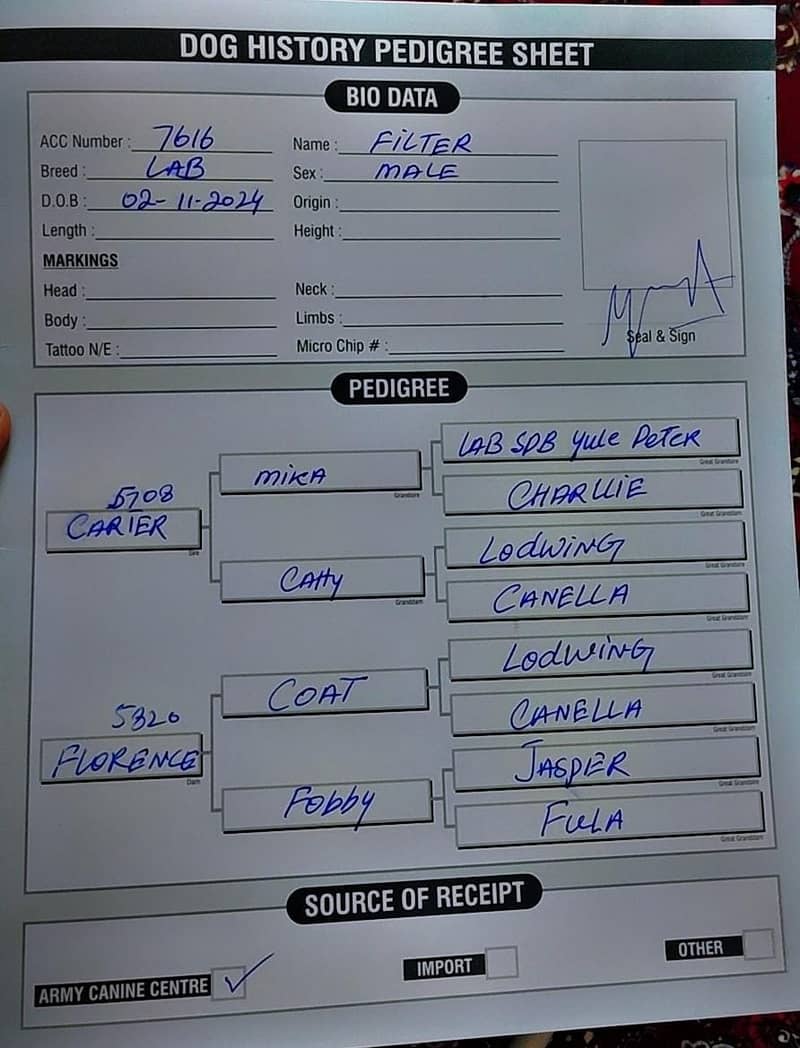 DOG HISTORY PEDIGREE SHEET
BIO DATA
ACC Number : 7616 Name : FILTER
Breed : LAB Sex : MALE
D.O.B : 02-11-2024 Origin :
Length : Height :
MARKINGS
Head : Neck :
Body : Limbs :
Seal & Sign
Tattoo N/E : Micro Chip # :
PEDIGREE
LAB SDB Yule Peter
Great Grandsire
MIKA
Grandsire
CHARLLIE
Great Grandsire
5708
CARIER
Sire
Lodwing
Great Grandsire
CAtty
Granddam
CANELLA
Great Granddam
Lodwing
Great Grandsire
COAT
CANELLA
Great Grandsire
5320
FLORENCE
Dam
JASPER
Great Grandsire
Fobby
FULA
Great Granddam
SOURCE OF RECEIPT
ARMY CANINE CENTRE IMPORT OTHER